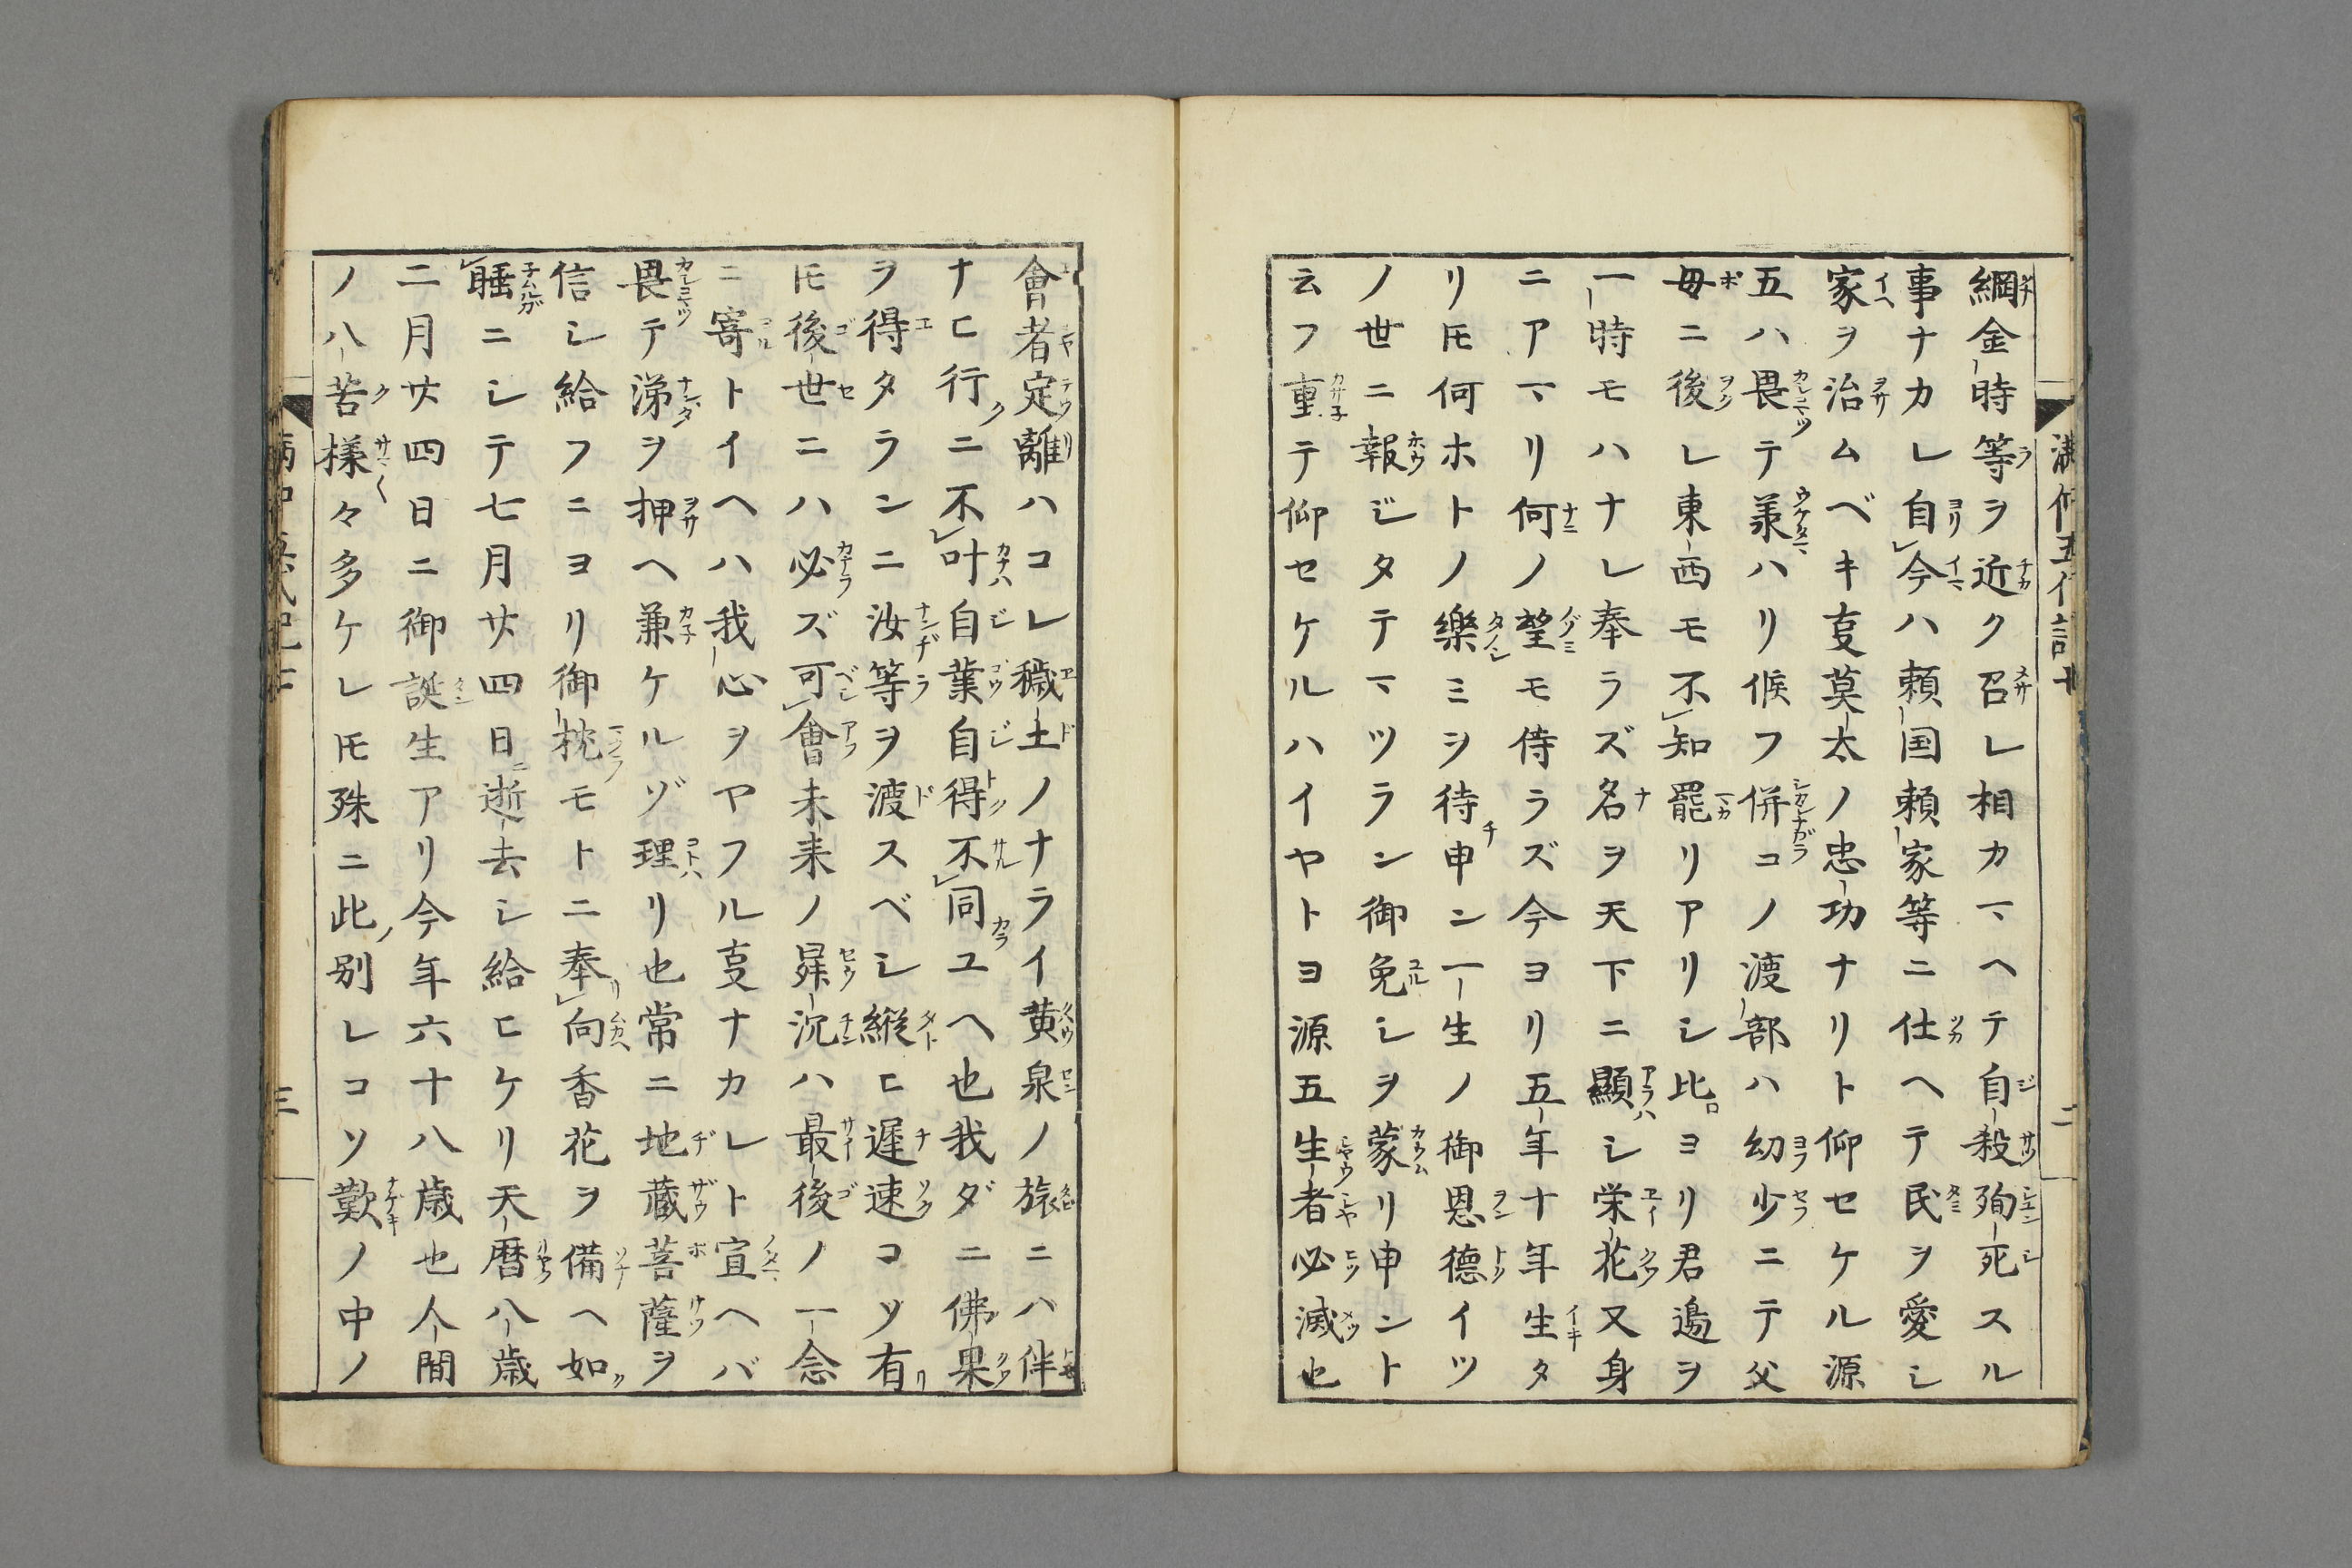 綱金時等ヲ近ク召レ相カマヘテ自殺殉死スル
事ナカレ自今ハ頼国頼家等ニ仕ヘテ民ヲ愛シ
家ヲ治ムベキ㕝莫太ノ忠功ナリト仰セケル源
五ハ畏テ羕ハリ候フ併コノ渡部ハ幼少ニテ父
母ニ後レ東西モ不知罷リアリシ比ヨリ君邉ヲ
一時モハナレ奉ラズ名ヲ天下ニ顯シ栄花又身
ニアマリ何ノ望モ侍ラズ今ヨリ五年十年生タ
リ𪜈何ホトノ樂ミヲ待申ン一生ノ御恩德イツ
ノ世ニ報ジタテマツラン御免シヲ蒙リ申ント
云フ重テ仰セケルハイヤトヨ源五生者必滅也
會者定離ハコレ穢土ノナライ黄泉ノ旅ニハ伴
ナヒ行ニ不叶自業自得不同ユヘ也我ダニ佛果
ヲ得タランニ汝等ヲ渡スベシ縦ヒ遲速コソ有
𪜈後世ニハ必ズ可會未来ノ曻沉ハ最後ノ一念
ニ寄トイヘハ我心ヲヤフル㕝ナカレト宣ヘバ
畏テ涕ヲ押ヘ兼ケルゾ理リ也常ニ地蔵菩薩ヲ
信シ給フニヨリ御枕モトニ奉向香花ヲ備ヘ如
睡ニシテ七月廿四日逝去シ給ヒケリ天暦八歳
二月廿四日ニ御誕生アリ今年六十八歳也人間
ノ八苦様々多ケレ𪜈殊ニ此別レコソ歎ノ中ノ
三